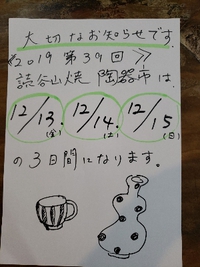 大切なお知らせです
《2019 第39回》
読谷山焼 陶器市は
12/13(金).12/14(土).12/15(日)
の3日間になります。